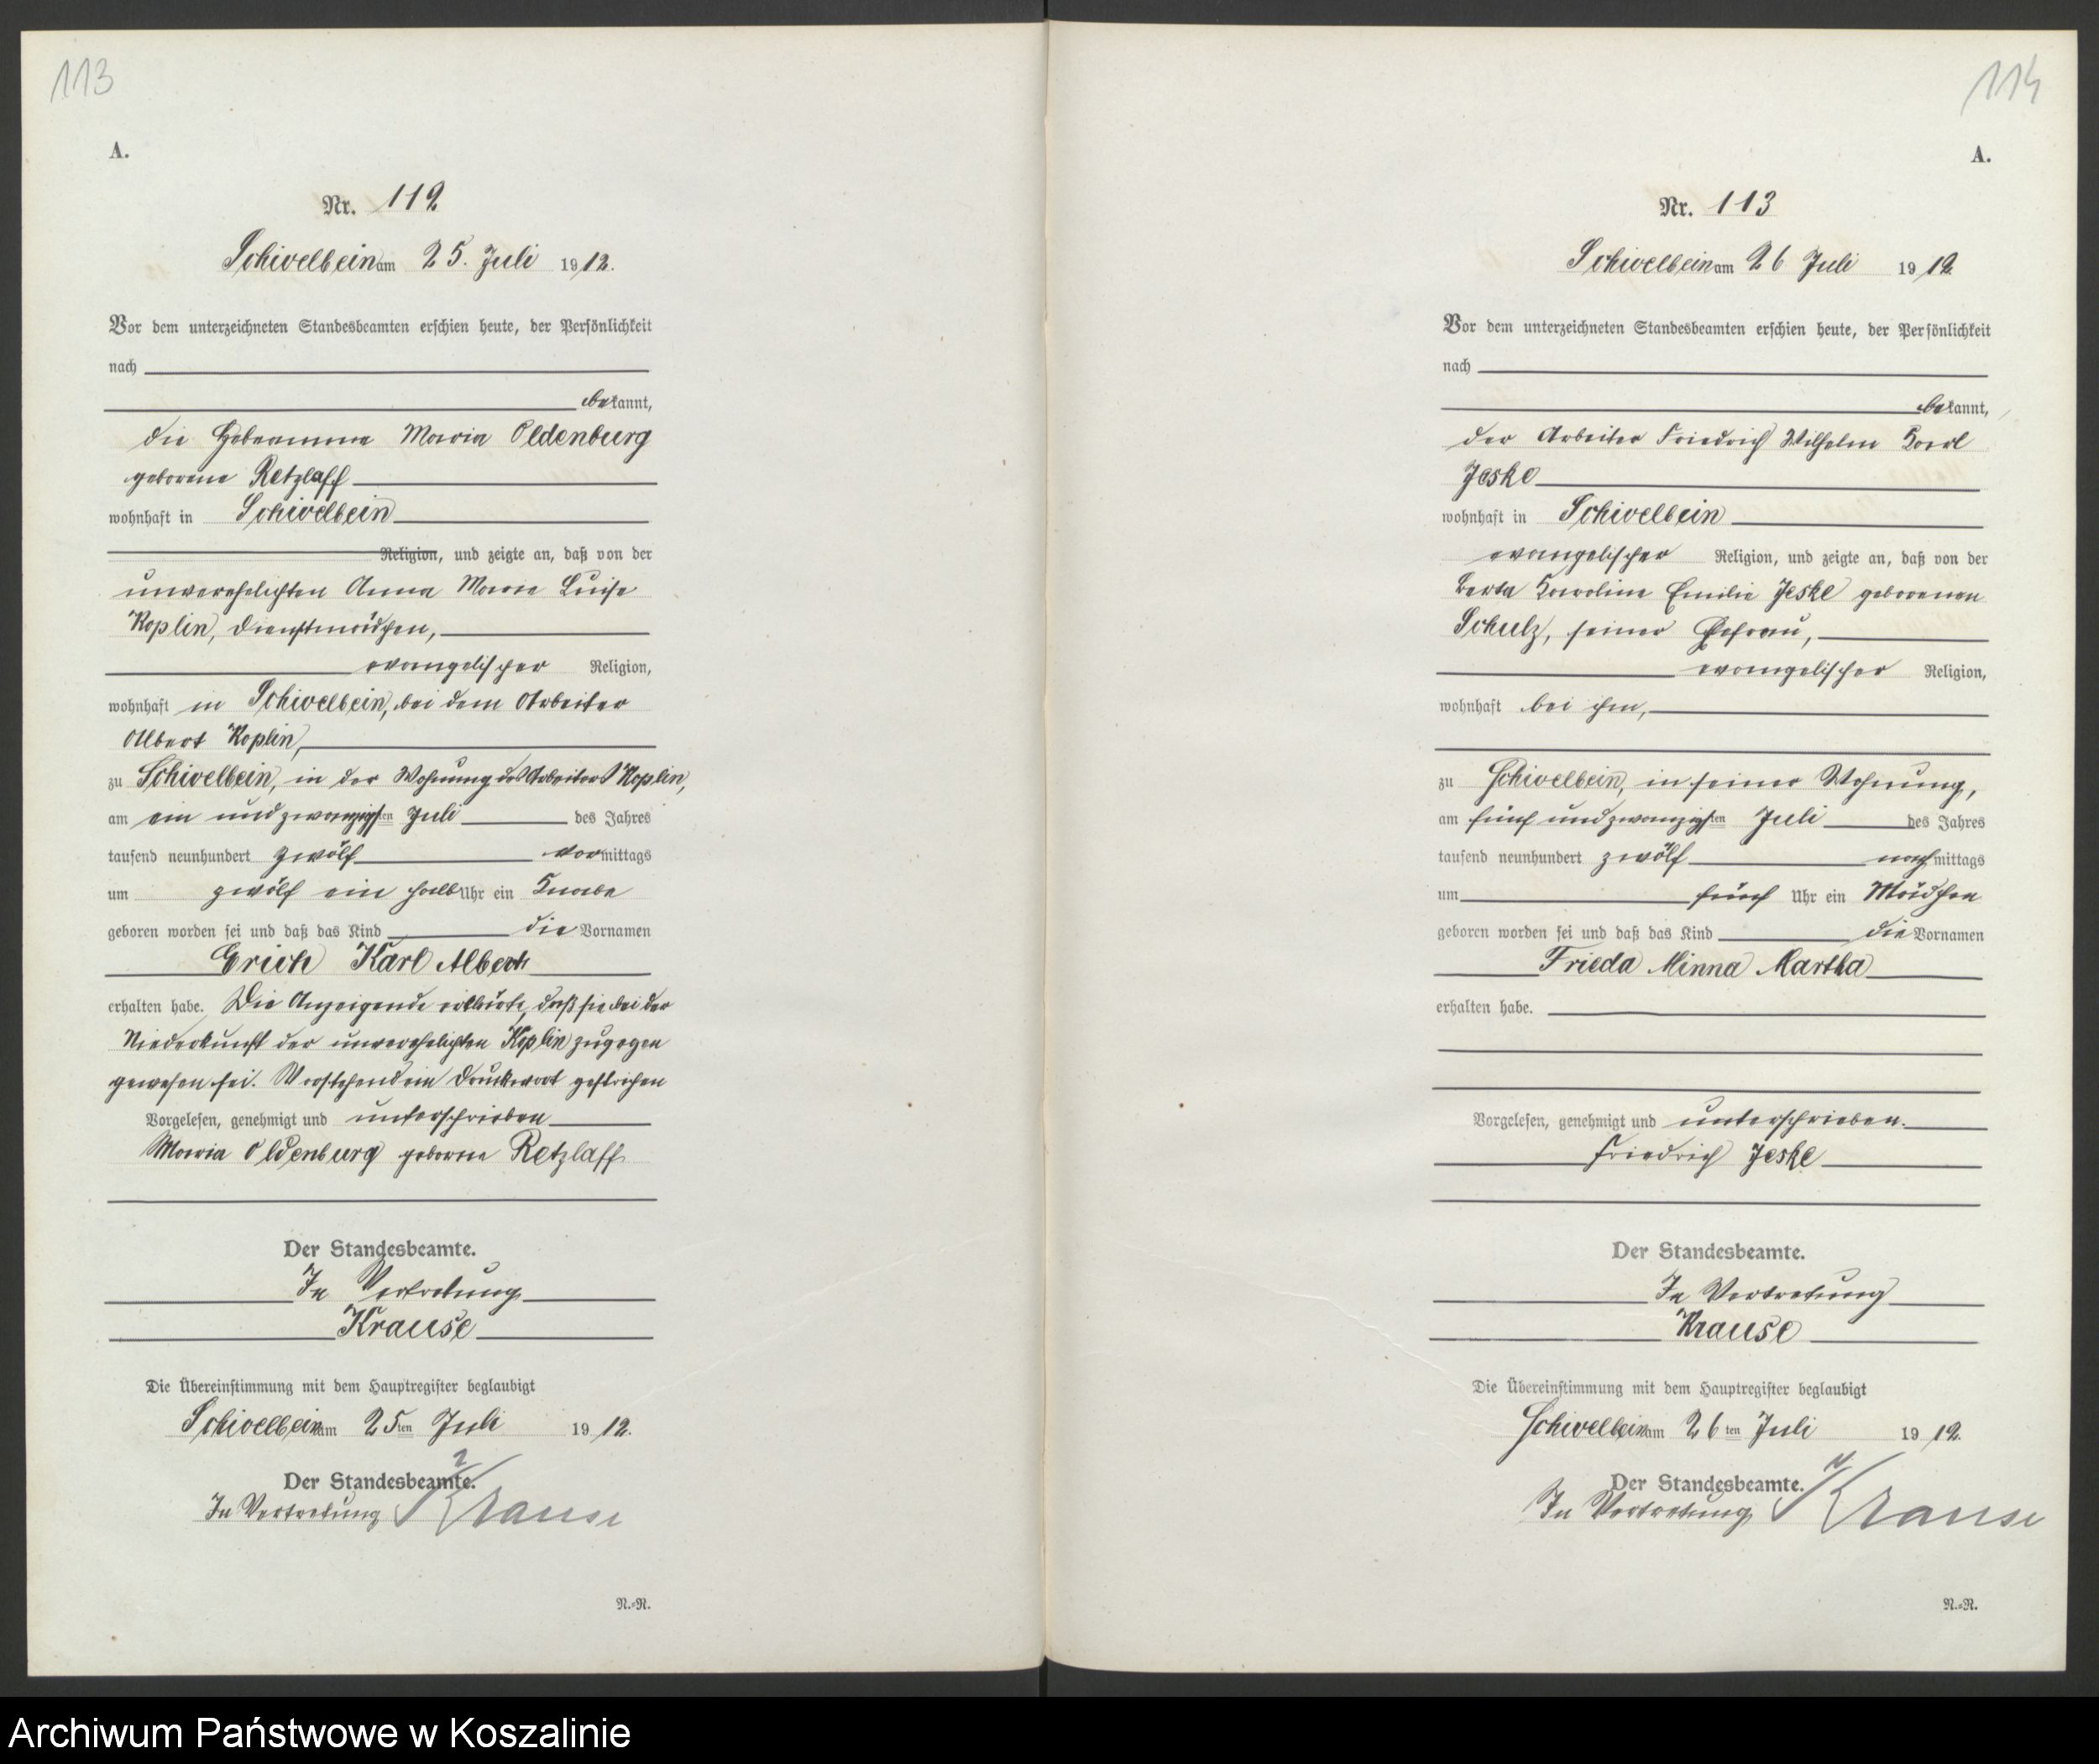 113
A.
Nr. 112
Schivelbein am 25. Juli 1912.
Vor dem unterzeichneten Standesbeamten erschien heute, der Persönlichkeit
nach
bekannt,
die Hebamme Maria Oldenburg
geborene Retzlaff
wohnhaft in Schivelbein
Religion, und zeigte an, daß von der
unverehelichten Anna Marie Luise
Koplin, Dienstmädchen,
evangelischer Religion,
wohnhaft in Schivelbein, bei dem Arbeiter
Albert Koplin,
zu Schivelbein, in der Wohnung des Arbeiters Koplin,
am ein und zwanzigsten Juli des Jahres
tausend neunhundert zwölf vormittags
um zwölf ein halb Uhr ein Knabe
geboren worden sei und daß das Kind die Vornamen
Erich Karl Albert
erhalten habe. Die Anzeigende erklärte, daß sie bei der
Niederkunft der unverehelichten Koplin zugegen
gewesen sei. Vorstehend ein Druckwort gestrichen
Vorgelesen, genehmigt und unterschrieben
Maria Oldenburg geborene Retzlaff
Der Standesbeamte.
In Vertretung
Krause
Die Übereinstimmung mit dem Hauptregister beglaubigt
Schivelbein am 25ten Juli 1912.
Der Standesbeamte.
In Vertretung Krause
N.=R.
114
A.
Nr. 113
Schivelbein am 26 Juli 1912
Vor dem unterzeichneten Standesbeamten erschien heute, der Persönlichkeit
nach
bekannt,
der Arbeiter Friedrich Wilhelm Karl
Jeske
wohnhaft in Schivelbein
evangelischer Religion, und zeigte an, daß von der
Berta Karoline Emilie Jeske geborenen
Schulz, seiner Ehefrau,
evangelischer Religion,
wohnhaft bei ihm,
zu Schivelbein, in seiner Wohnung,
am fünf und zwanzigsten Juli des Jahres
tausend neunhundert zwölf nachmittags
um fünf Uhr ein Mädchen
geboren worden sei und daß das Kind die Vornamen
Frieda Minna Martha
erhalten habe.
Vorgelesen, genehmigt und unterschrieben.
Friedrich Jeske
Der Standesbeamte.
In Vertretung
Krause
Die Übereinstimmung mit dem Hauptregister beglaubigt
Schivelbein am 26ten Juli 1912.
Der Standesbeamte.
In Vertretung Krause
N.=R.
Archiwum Państwowe w Koszalinie